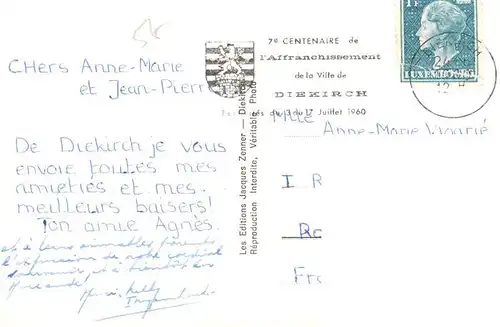 CHers Anne-Marie
et Jean-Pierre
De Diekirch je vous
envoie toutes mes
amietiés et mes
meilleurs baisers!
Ton amie Agnès.
et à leurs aimables Parents
l'expression de notre cordial
souvenir, et à bientôt en
7e CENTENAIRE de
l'Affranchissement
de la Ville de
DIEKIRCH
du 3 du 17 Juillet 1960
Les Editions Jacques Zenner — Diekirch
Réproduction Interdite, Véritable Photo
1F
LUXEMBOURG
12 H
Mlle
Anne-Marie
I R
Rc
Frc